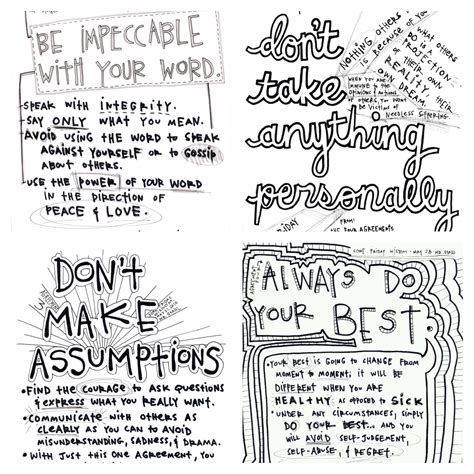 BE IMPECCABLE
WITH YOUR WORD.
SPEAK WITH INTEGRITY.
SAY ONLY WHAT YOU MEAN.
AVOID USING THE WORD TO SPEAK
AGAINST YOURSELF OR TO GOSSIP
ABOUT OTHERS.
USE THE POWER OF YOUR WORD
IN THE DIRECTION OF
PEACE & LOVE.
don't
take
anything
personally
NOTHING OTHERS
IS BECAUSE OF
WHAT OTHERS
DO IS A
PROJECTION
OF THEIR OWN
REALITY, THEIR
OWN DREAM.
WHEN YOU ARE
IMMUNE TO THE
OPINIONS & ACTIONS
OF OTHERS, YOU WON'T
BE THE VICTIM OF
NEEDLESS SUFFERING.
FRIDAY
FROM:
AGREEMENTS
DON'T
MAKE
ASSUMPTIONS
•FIND THE COURAGE TO ASK QUESTIONS
& EXPRESS WHAT YOU REALLY WANT.
•COMMUNICATE WITH OTHERS AS
CLEARLY AS YOU CAN TO AVOID
MISUNDERSTANDING, SADNESS, & DRAMA.
•WITH JUST THIS ONE AGREEMENT, YOU
ALWAYS DO
YOUR BEST.
•YOUR BEST IS GOING TO CHANGE FROM
MOMENT TO MOMENT; IT WILL BE
DIFFERENT WHEN YOU ARE
HEALTHY AS OPPOSED TO SICK
•UNDER ANY CIRCUMSTANCES, SIMPLY
DO YOUR BEST... AND YOU
WILL AVOID SELF-JUDGEMENT,
SELF-ABUSE, & REGRET.